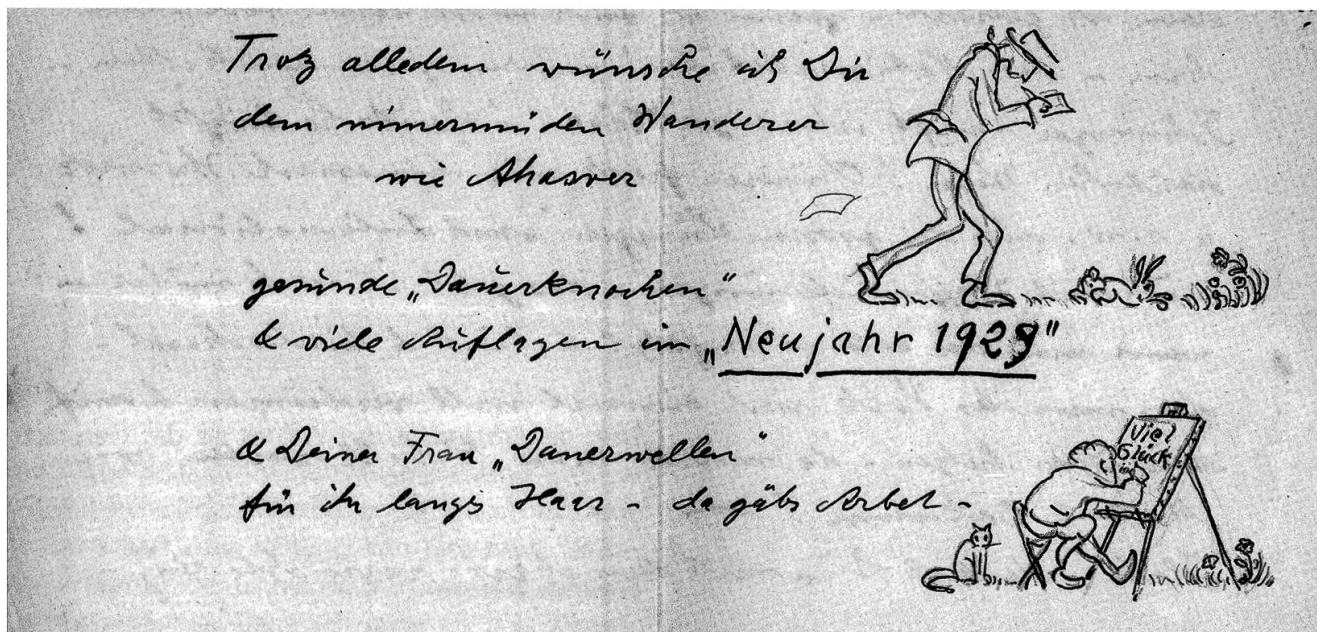 Trotz alledem wünsche ich Dir
dem nimermüden Wanderer
wie Ahasver
gesunde „Dauerknochen“
& viele Auflagen im „Neujahr 1929“
& Deiner Frau „Dauerwellen“
für ihr langs Haar - da gäbs Arbet -
Viel
Glück